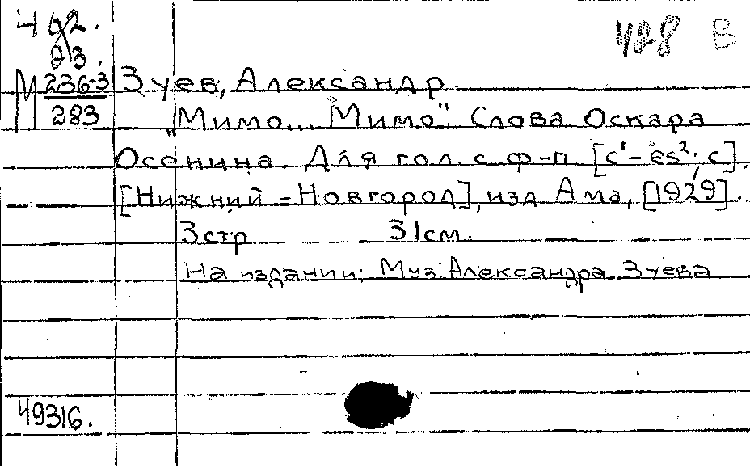 428 В
Зуев, Александр
"Мимо... Мимо" Слова Оскара
Осенина. Для гол. с ф-п. [c¹-es²; c].
[Нижний-Новгород], изд. Ама, [1929].
3 стр 31см.
На издании: Муз. Александра Зуева
М 236-3
283
49316.